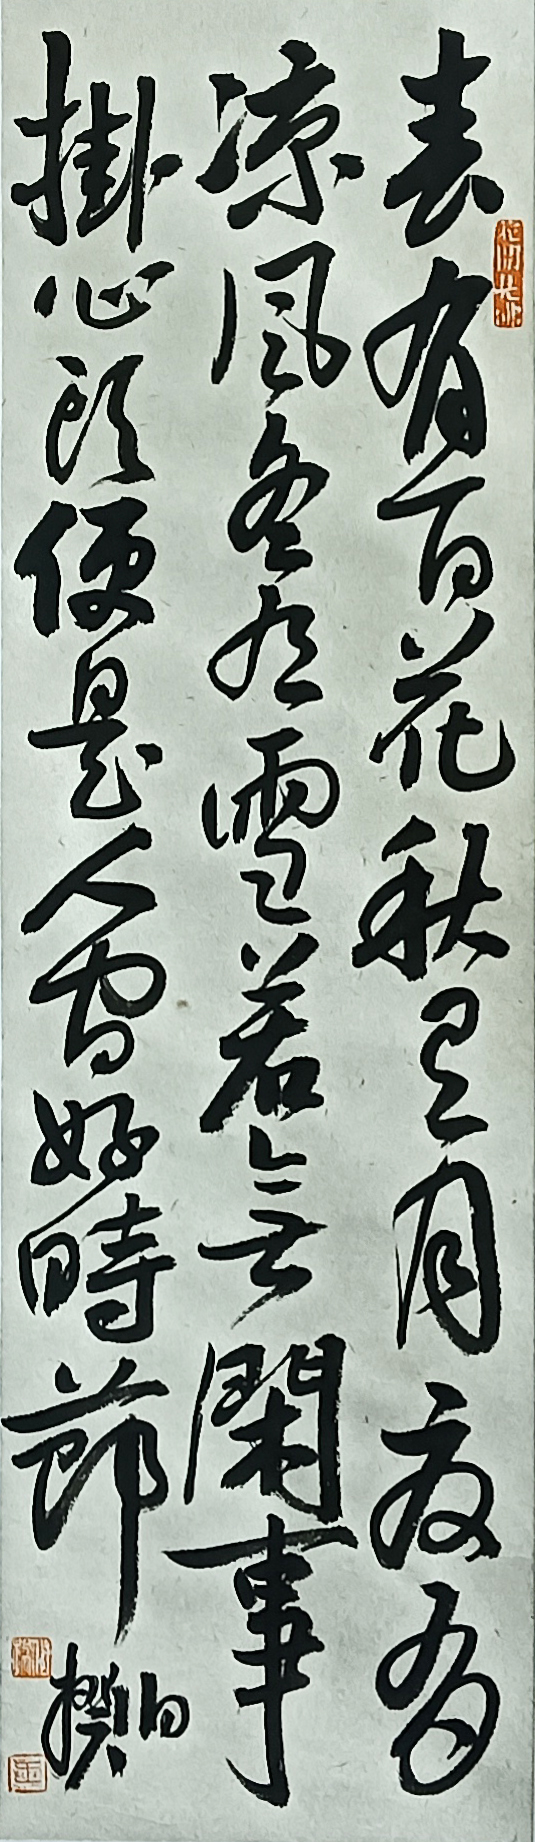 春有百花秋有月夜有
凉風冬有雪若無閑事
掛心頭便是人間好時節